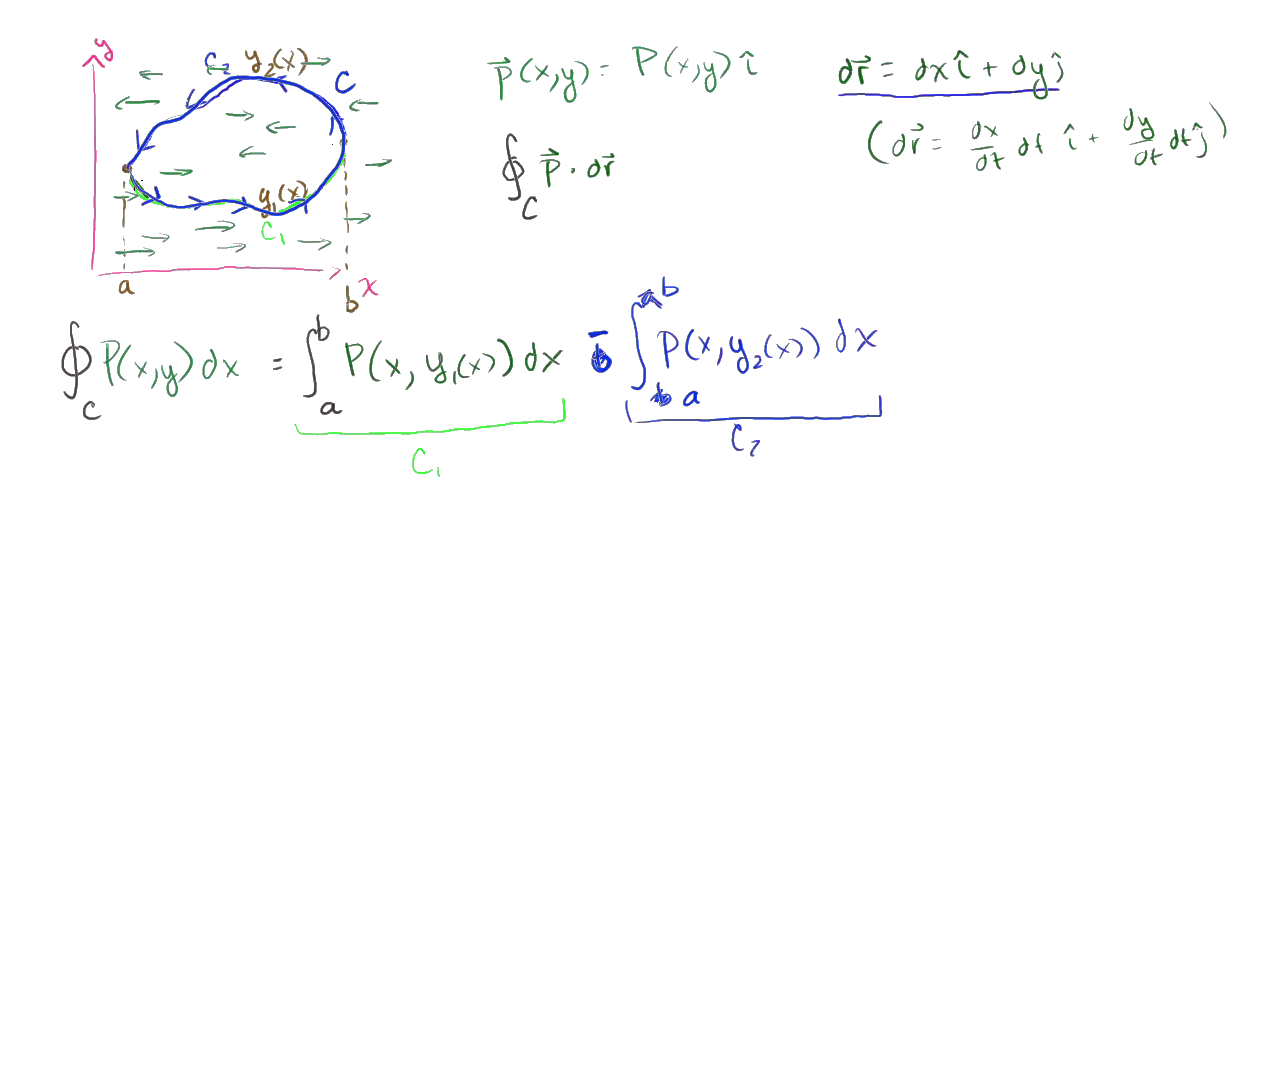 y
C₂ y₂(x)
C
y₁(x)
C₁
a
b x
p⃗(x,y) = P(x,y) î
∮_C p⃗ · dr⃗
dr⃗ = dx î + dy ĵ
(dr⃗ = dx/dt dt î + dy/dt dt ĵ)
∮_C P(x,y) dx = ∫_a^b P(x, y₁(x)) dx − ∫_a^b P(x, y₂(x)) dx
C₁ C₂